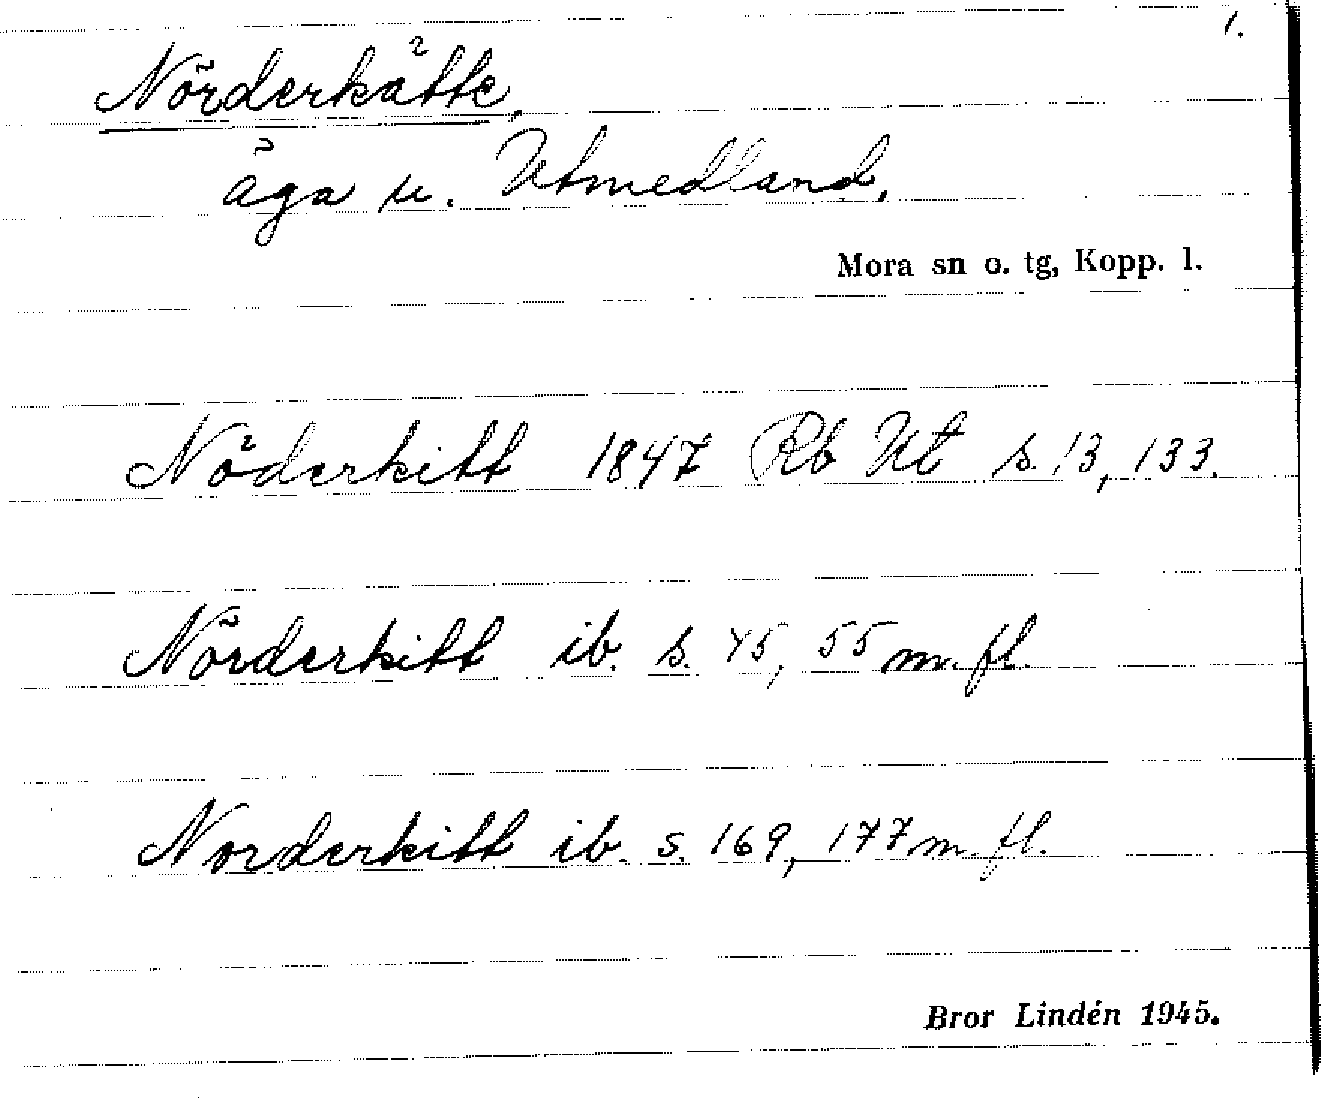 1.
Nörderkätte,
äga u. Utmedland.
Mora sn o. tg, Kopp. l.
Nöderkitt 1847 Rb Ut s. 13, 133.
Nörderkitt ib. s. 45, 55 m. fl.
Norderkitt ib. s. 169, 177 m. fl.
Bror Lindén 1945.